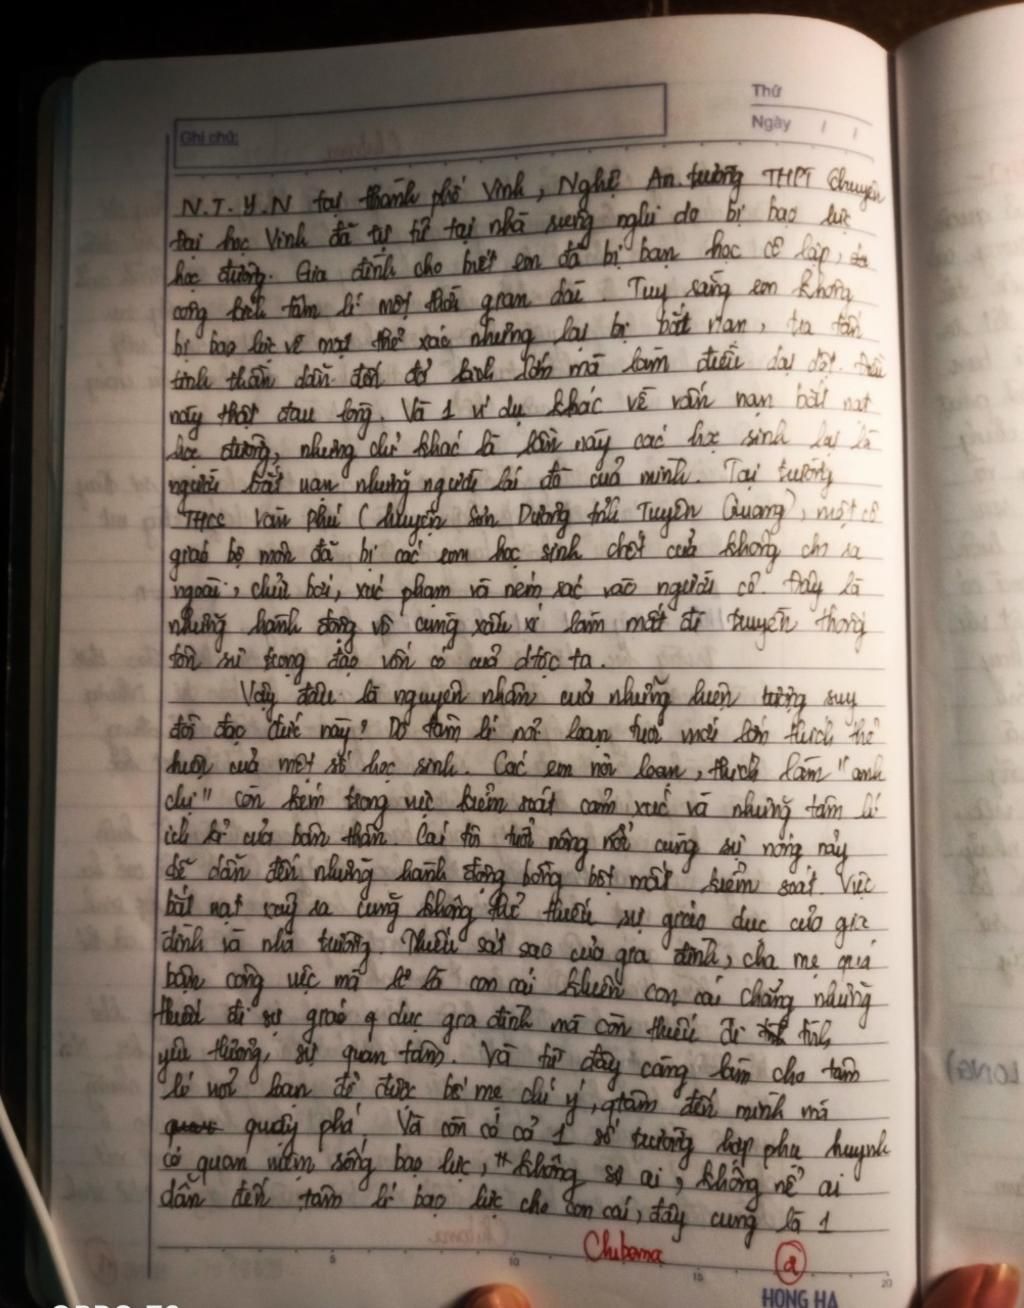 Thứ
Ghi chú:
Ngày / /
N.T.Y.N tại thành phố Vinh, Nghệ An. trường THPT Chuyên
đại học Vinh đã tự tử tại nhà riêng nghi do bị bạo lực
học đường. Gia đình cho biết em đã bị bạn học cô lập,
công kích tâm lí một thời gian dài. Tuy rằng em không
bị bạo lực về mặt thể xác nhưng lại bị bắt nạn, tra tấn
tinh thần dẫn đến đả kích lớn mà làm điều dại dột. Điều
này thật đau lòng. Và 1 ví dụ khác về vấn nạn bắt nạt
học đường, nhưng chỉ khác là lần này các học sinh lại là
người bắt nạn những người lái đò của mình. Tại trường
THCS Văn Phú (huyện Sơn Dương tỉnh Tuyên Quang), một cô
giáo bộ môn đã bị các em học sinh chốt cửa không cho ra
ngoài, chửi bới, xúc phạm và ném rác vào người cô. Đây là
những hành động vô cùng xấu xí làm mất đi truyền thống
tôn sư trọng đạo vốn có của dtộc ta.
Vậy đâu là nguyên nhân của những hiện tượng suy
đồi đạo đức này? Do tâm lí nổi loạn tuổi mới lớn thích thể
hiện của một số học sinh. Các em nổi loạn, thích làm "anh
chị" còn kém trong việc kiểm soát cảm xúc và những tâm lí
ích kỉ của bản thân. Cái tôi tuổi nông nổi cùng sự nóng nảy
dễ dẫn đến những hành động bồng bột mất kiểm soát. Việc
bắt nạt xảy ra cũng không thể thiếu sự giáo dục của gia
đình và nhà trường. Thiếu sát sao của gia đình, cha mẹ quá
bận công việc mà lơ là con cái khiến con cái chẳng những
thiếu đi sự giáo dục gia đình mà còn thiếu đi tình
yêu thương, sự quan tâm. Và từ đấy càng làm cho tâm
lí nổi loạn để được bố mẹ chú ý, qtâm đến mình mà
quậy phá. Và còn có cả 1 số trường hợp phụ huynh
có quan niệm sống bạo lực, "không sợ ai, không nể ai
dẫn đến tâm lí bạo lực cho con cái, đây cũng là 1
Chubema
2
5 10 15 20
HONG HA
LONG)